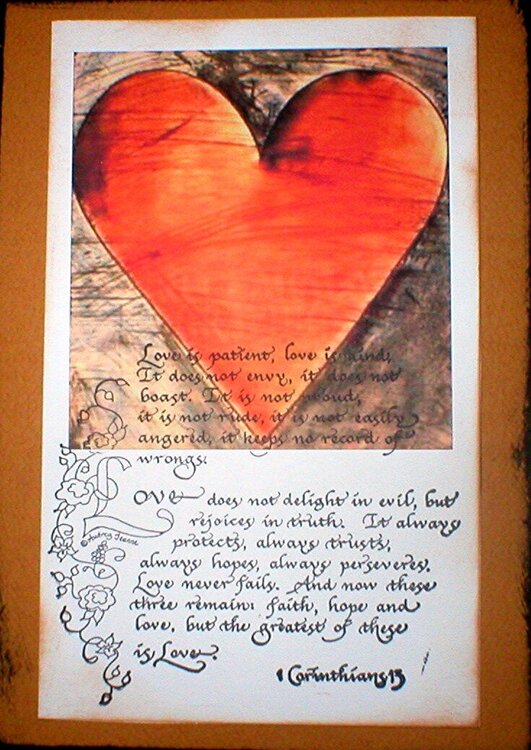 Love is patient, love is kind;
It does not envy, it does not
boast. It is not proud,
it is not rude, it is not easily
angered, it keeps no record of
wrongs.
Love does not delight in evil, but
rejoices in truth. It always
protects, always trusts,
always hopes, always perseveres.
Love never fails. And now these
three remain: faith, hope and
love, but the greatest of these
is Love.
1 Corinthians 13